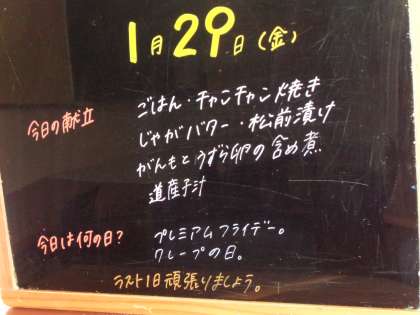 1月29日(金)
今日の献立
ごはん・チャンチャン焼き
じゃがバター・松前漬け
がんもとうずら卵の含め煮
道産子汁
今日は何の日?
プレミアムフライデー。
クレープの日。
ラスト1日頑張りましょう。